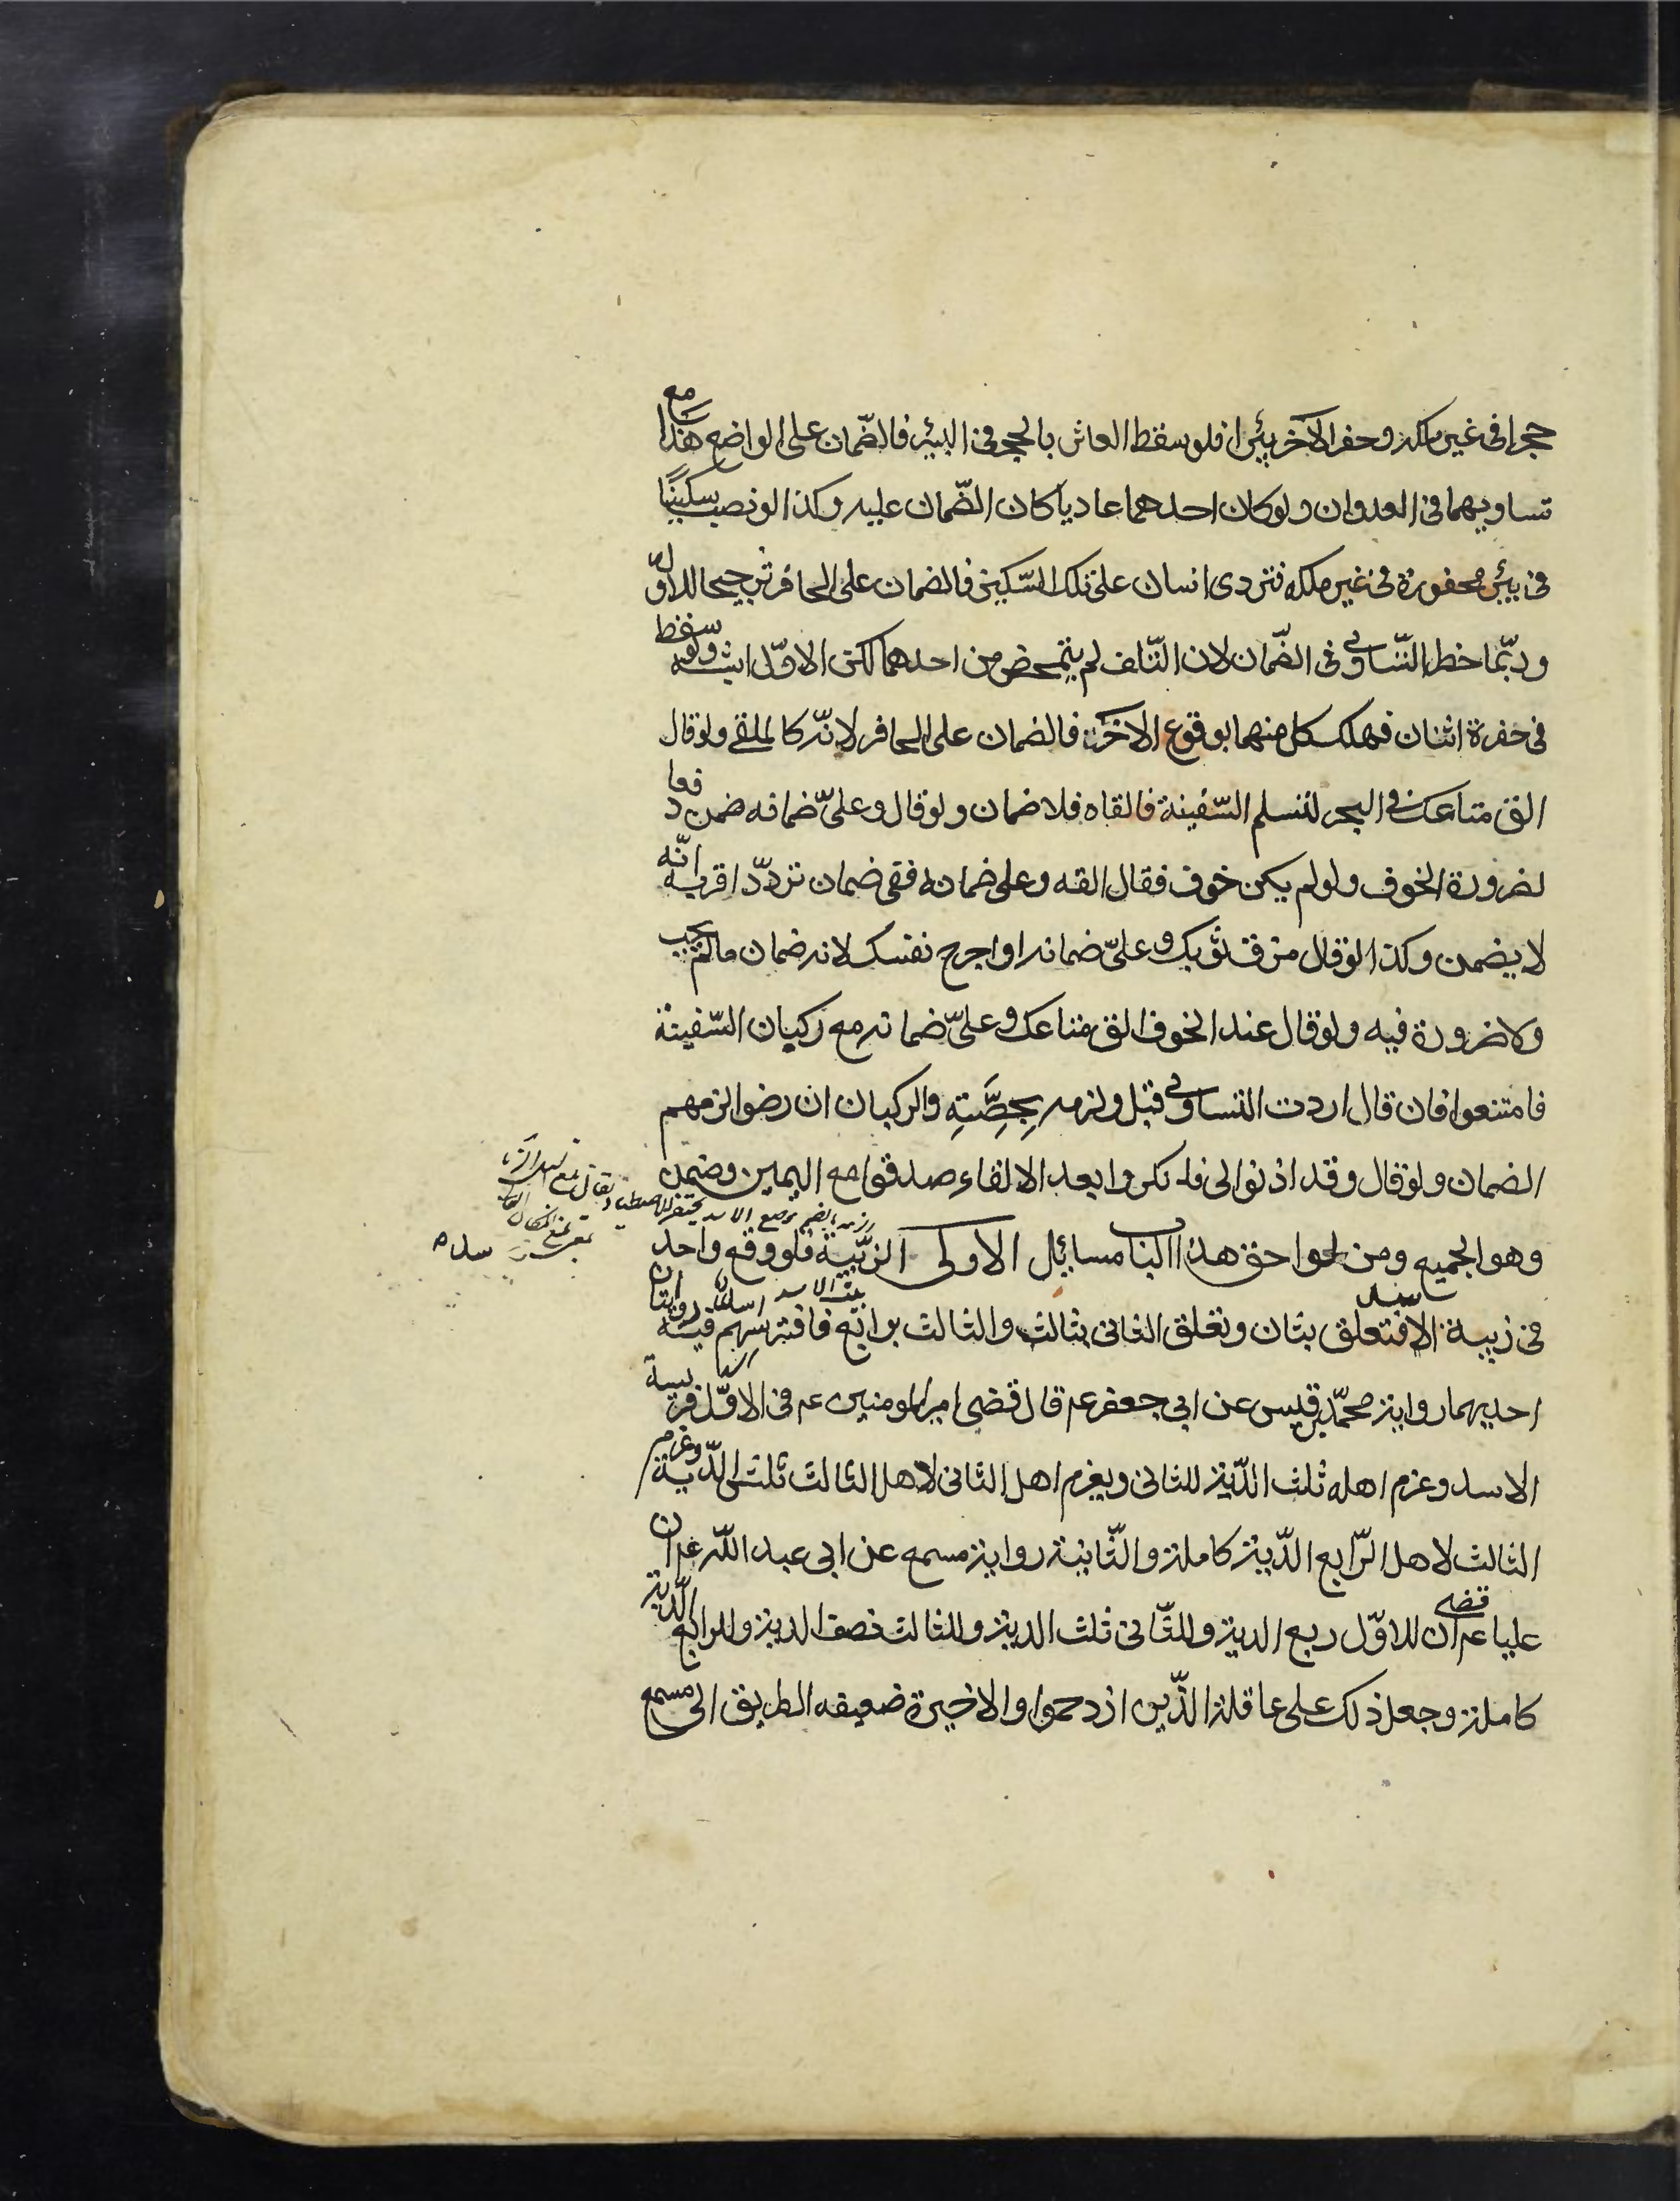 حجرا فى غير ملكه وحفر الآخر بيئرا فلو سقط العاثر بالحجر فى البيئر فالضّمان على الواضع هذا مع
تساويهما فى العدوان ولو كان احدهما عاديا كان الضّمان عليه وكذا لو نصب سكّينًا
فى بيئر محفورة فى غير ملكه فتردى انسان على تلك السّكين فالضمان على الحافر ترجيحا للاوّل
وربّما خطر التّساوى فى الضّمان لان التّلف لم يتمحض من احدهما لكن الاوّل اشبه ولو سقط
فى حفرة اثنان فهلك كل منهما بوقوع الآخر فالضمان على الحافر لانّه كالملقى ولو قال
الق متاعك فى البحر لتسلم السّفينة فالقاه فلا ضمان ولو قال وعلىّ ضمانه ضمن دفعا
لضرورة الخوف ولو لم يكن خوف فقال القه وعلى ضمانه ففى ضمان تردّد اقربه انّه
لا يضمن وكذا لو قال مزق ثوبك وعلىّ ضمانه او اجرح نفسك لانه ضمان ما لم يجب
ولا ضرورة فيه ولو قال عند الخوف الق متاعك وعلىّ ضمانه مع ركبان السّفينة
فامتنعوا فان قال اردت التساوى قبل ولزمه بحِصَّتِهِ والركبان ان رضوا لزمهم
الضمان ولو قال وقد اذنوا لى فانكروا بعد الالقاء صدقوا مع اليمين وضمن
وهو الجميع ومن لواحق هذا الباب مسائل الاولى الزبّية فلو وقع واحد
فى زبية الاسد فتعلق بثان وتعلق الثانى بثالث والثالث برابع فافترسهم فيه روايتان
احديهما رواية محمّد بن قيس عن ابى جعفر عم قال قضى امير المومنين عم فى الاوّل فريسة
الاسد وغرم اهله ثلث الدّية للثانى ويغرم اهل الثانى لاهل الثالث ثلثى الدّية وغرم
الثالث لاهل الرّابع الدّية كاملة والثّانية رواية مسمع عن ابى عبد اللّه عم ان
عليا عم قضى ان للاوّل ربع الدية وللثّانى ثلث الدية وللثالث نصف الدية وللرابع الدّية
كاملة وجعل ذلك على عاقلة الذّين ازدحموا والاخيرة ضعيفه الطريق الى مسمع